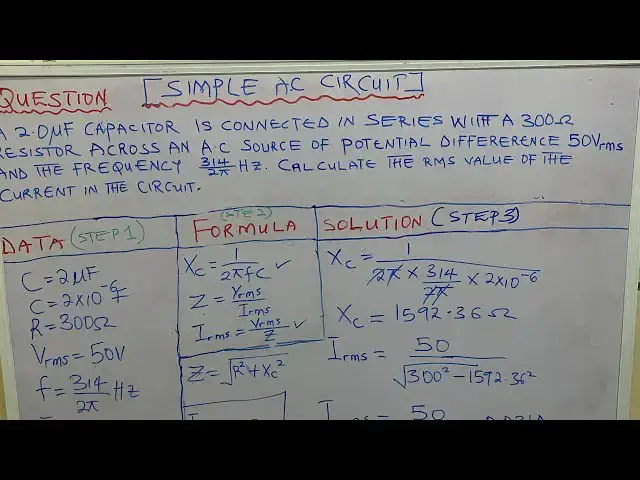 [SIMPLE AC CIRCUIT]
QUESTION
A 2.0μF CAPACITOR IS CONNECTED IN SERIES WITH A 300Ω
RESISTOR ACROSS AN A.C SOURCE OF POTENTIAL DIFFERENCE 50Vrms
AND THE FREQUENCY 314/2π Hz. CALCULATE THE RMS VALUE OF THE
CURRENT IN THE CIRCUIT.
DATA (STEP1)
C = 2μF
C = 2×10⁻⁶F
R = 300Ω
Vrms = 50V
f = 314/2π Hz
(STE2)
FORMULA
Xc = 1/2πfC ✓
Z = Vrms/Irms
Irms = Vrms/Z ✓
Z = √R²+Xc²
SOLUTION (STEP3)
Xc = 1/2π × 314/2π × 2×10⁻⁶
Xc = 1592.36Ω
Irms = 50/√300² − 1592.36²
50